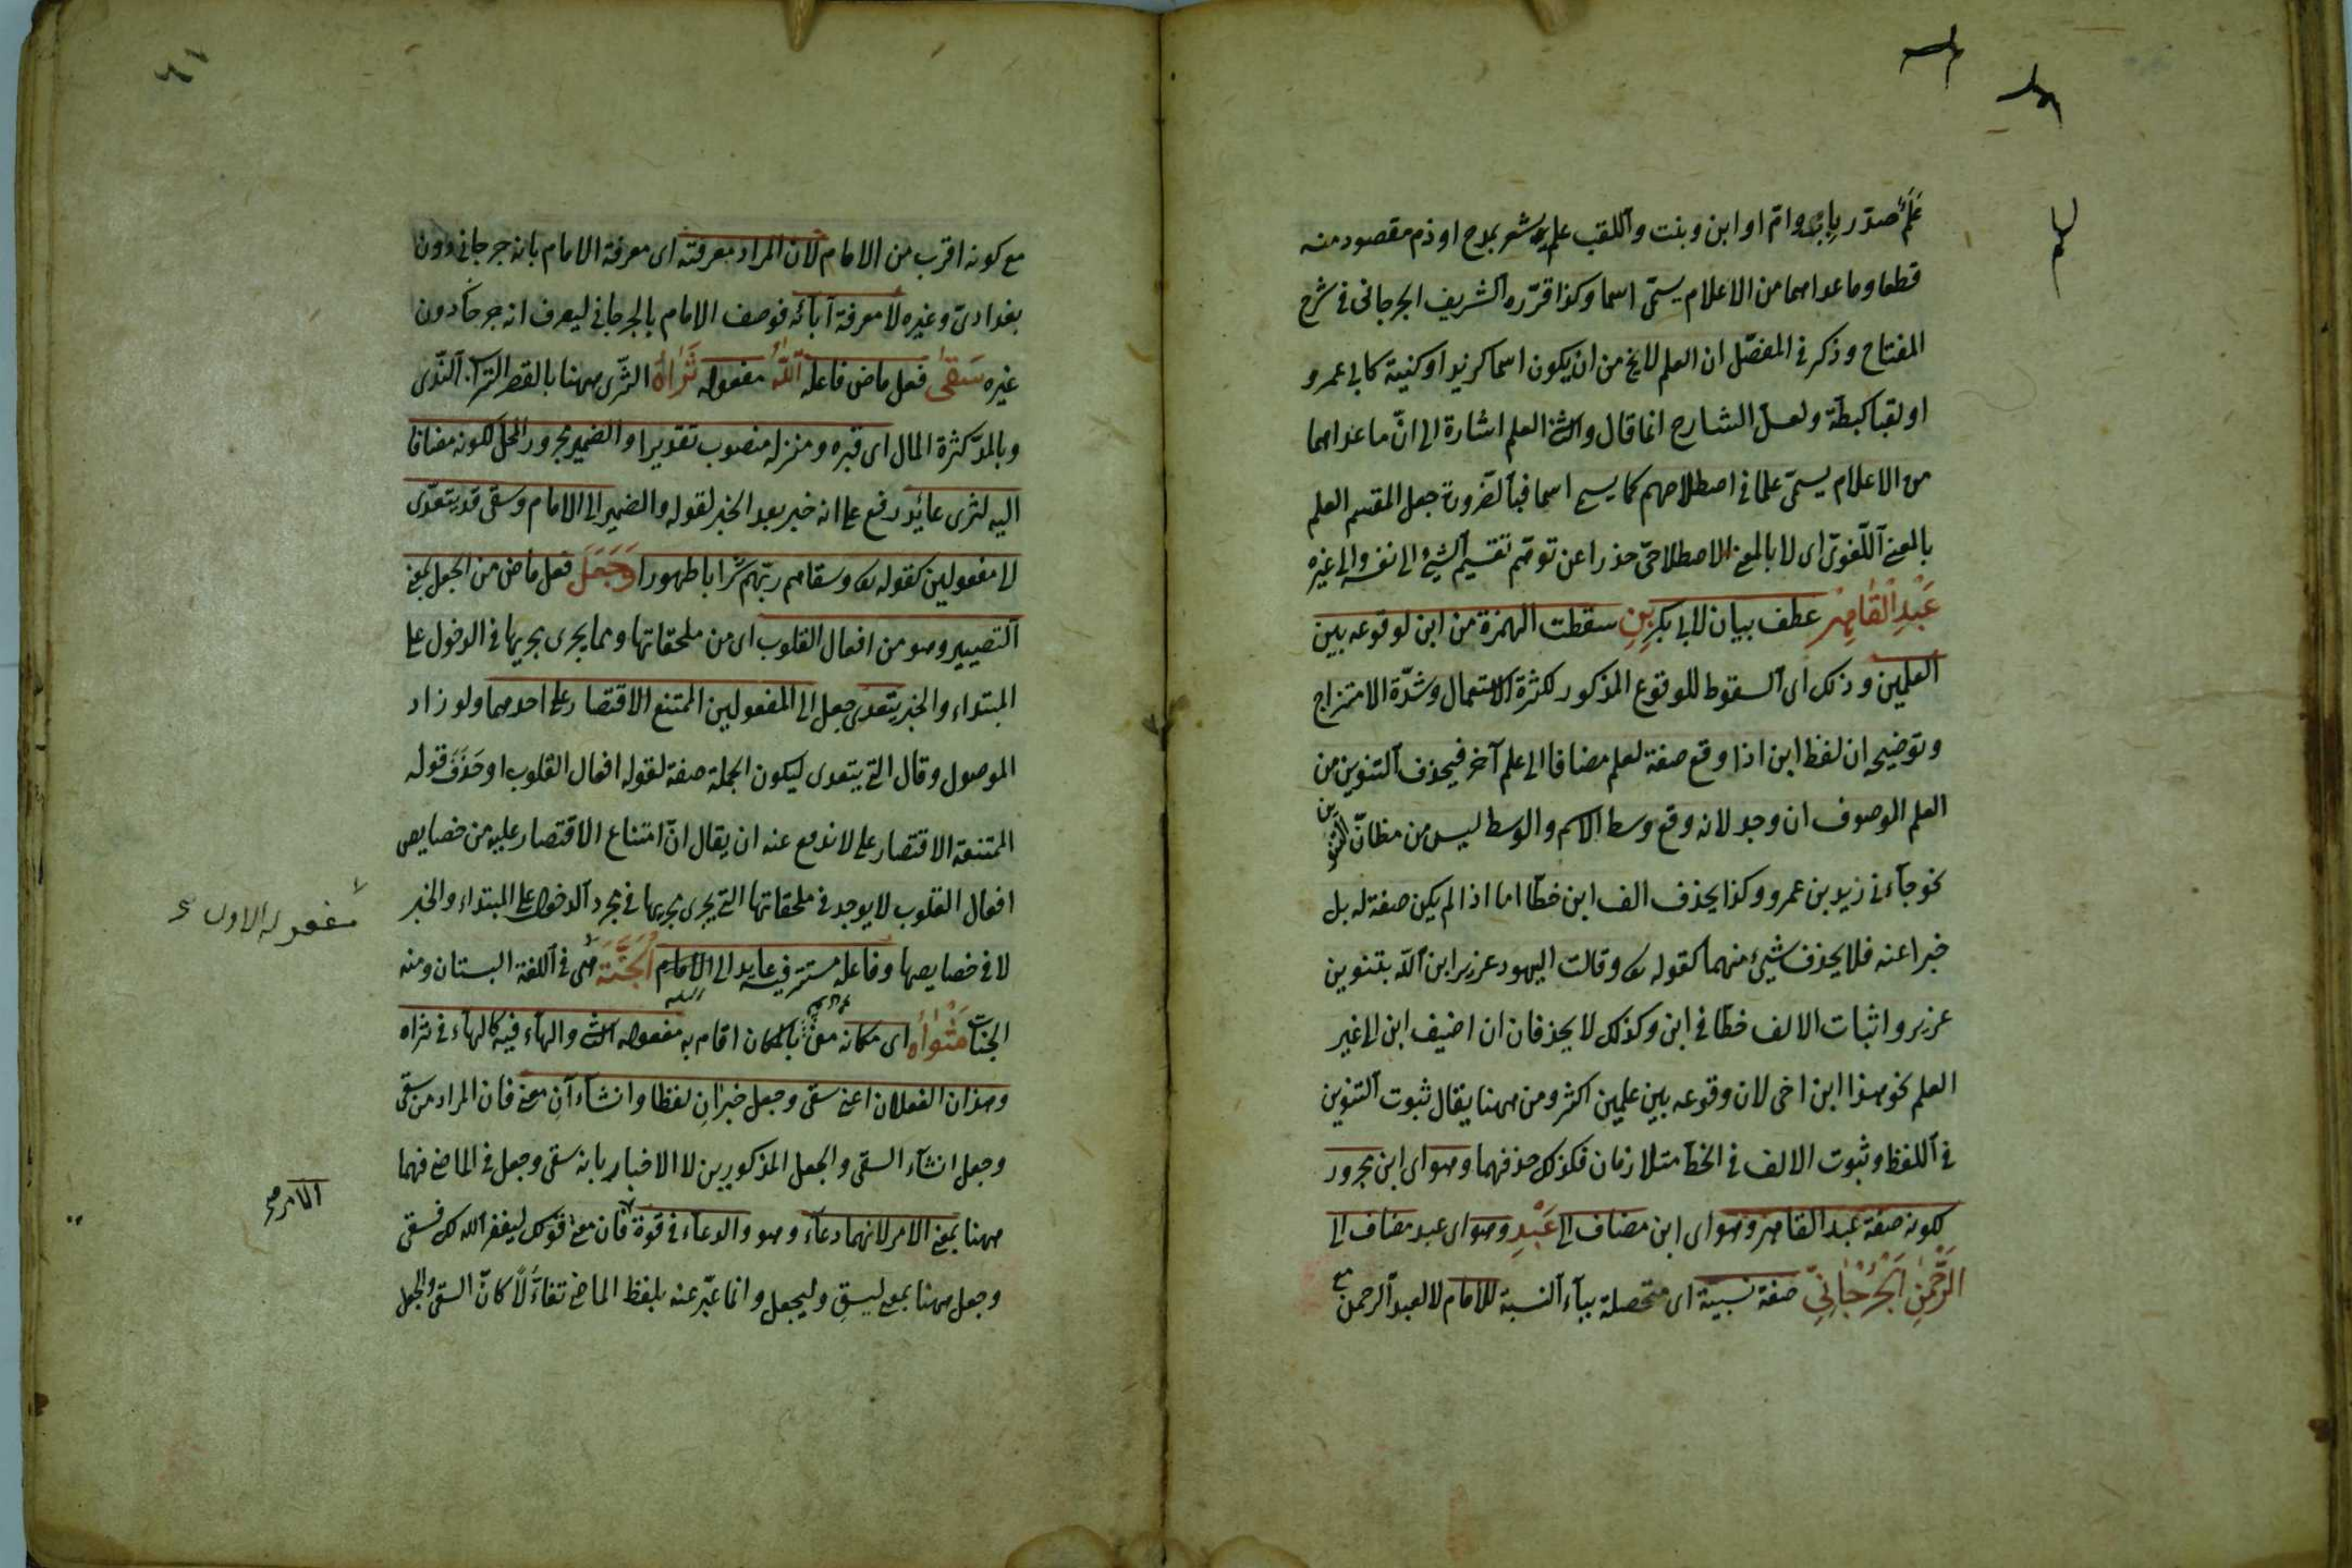 علم صدّر باب وامّ او ابن وبنت واللقب علم يشعر بمدح او ذم مقصود منه
قطعا وما عداهما من الاعلام يسمّى اسما وكذا قرّره الشريف الجرجانى فى شرح
المفتاح وذكر فى المفصّل ان العلم لايخ من ان يكون اسما كزيد او كنية كابى عمرو
او لقبا كبطّة ولعل الشارح انما قال والث العلم اشارة الى انّ ما عداهما
من الاعلام يسمّى علما فى اصطلاحهم كما يسمى اسما فبالضرورة جعل المقسم العلم
بالمعنى اللّغوىّ اى لا بالمعنى الاصطلاحىّ حذرا عن توهّم تقسيم الشئ الى نفسه والى غيره
عَبْدِ الْقَاهِرِ عطف بيان لابى بكر بْنِ سقطت الهمزة من ابن لوقوعه بين
العلمين وذلك اى السقوط للوقوع المذكور لكثرة الاستعمال وشدّة الامتزاج
وتوضيحه ان لفظ ابن اذا وقع صفة لعلم مضافا الى علم آخر فيحذف التنوين من
العلم الموصوف ان وجد لانه وقع وسط الاسم والوسط ليس من مظانّ التنوين
نحو جآءنى زيد بن عمرو وكذا يحذف الف ابن خطّا اما اذا لم يكن صفة له بل
خبرا عنه فلا يحذف شئ منهما كقوله تعا وقالت اليهود عزير ابن اللّه بتنوين
عزير واثبات الالف خطّا فى ابن وكذلك لا يحذفان ان اضيف ابن الى غير
العلم نحو هذا ابن اخى لان وقوعه بين علمين اكثر ومن ههنا يقال ثبوت التنوين
فى اللفظ وثبوت الالف فى الخطّ متلازمان فكذلك حذفهما وهو اى ابن مجرور
لكونه صفة عبد القاهر وهو اى ابن مضاف الى عَبْدِ وهو اى عبد مضاف الى
الرَّحْمٰنِ الْجُرْجَانِىِّ صفة نسبية اى متحصلة بيآء النسبة للامام لا لعبد الرحمن
مع كونه اقرب من الامام لان المراد معرفته اى معرفة الامام بانه جرجانى دون
بغدادىّ وغيره لا معرفة آبائه فوصف الامام بالجرجانى ليعرف انه جرجا دون
غيره سَقَى فعل ماض فاعله اللّٰهُ مفعوله ثَرَاهُ الثّرى ههنا بالقصر التراب النّدى
وبالمدّ كثرة المال اى قبره ومنزله منصوب تقديرا والضمير مجرور المحلّ لكونه مضافا
اليه لثرى عائد رفع على انه خبر بعد الخبر لقوله والضمير الى الامام وسقى قد يتعدّى
الى مفعولين كقوله تعا وسقاهم ربّهم شرابا طهورا وَجَعَلَ فعل ماض من الجعل بمعنى
التصيير وهو من افعال القلوب اى من ملحقاتها ومما يجرى مجريها فى الدخول على
المبتداء والخبر يتعدى جعل الى المفعولين الممتنع الاقتصار على احدهما ولو زاد
الموصول وقال التى يتعدى ليكون الجملة صفة لقوله افعال القلوب او حَذَفَ قوله
الممتنعة الاقتصار على لاندفع عنه ان يقال انّ امتناع الاقتصار عليه من خصايص
افعال القلوب لا يوجد فى ملحقاتها التى يجرى مجريها فى مجرد الدخول على المبتداء والخبر
لا فى خصايصها وفاعله مستتر فيه عايد الى الامام الْجَنَّةَ هى فى اللغة البستان ومنه
الجنات مَثْوَاهُ اى مكانه من بالمكان اقام به مفعوله الث والهآء فيه كالهآء فى ثراه
وهذان الفعلان اعنى سقى وجعل خبرانِ لفظا وانشآءآنِ معنى فان المراد من سقى
وجعل انشآء السقى والجعل المذكورين لا الاخبار بانه سقى وجعل فى الماضى فهما
ههنا بمعنى الامر لانهما دعآء وهو والدعآء فى قوة فان معنى قولك ليغفر الله لك فسقى
وجعل ههنا بمعنى ليسقِ وليجعل وانما عبّر عنه بلفظ الماضى تفآؤلًا كانّ السقى والجعل
مفعوله الاول صح
الامر صح